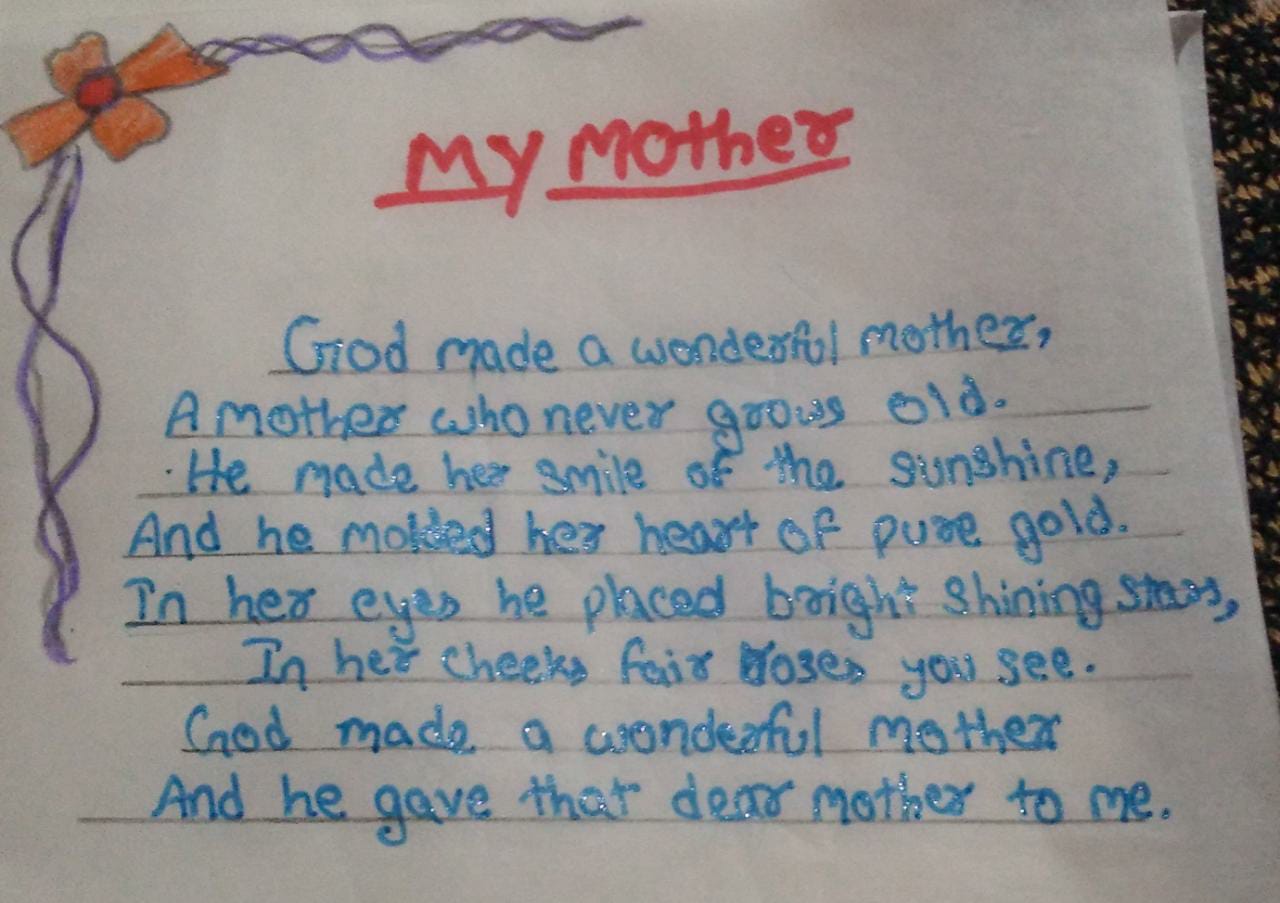 My Mother
God made a wonderful mother,
A mother who never grows old.
He made her smile of the sunshine,
And he molded her heart of pure gold.
In her eyes he placed bright shining stars,
In her cheeks fair roses you see.
God made a wonderful mother
And he gave that dear mother to me.